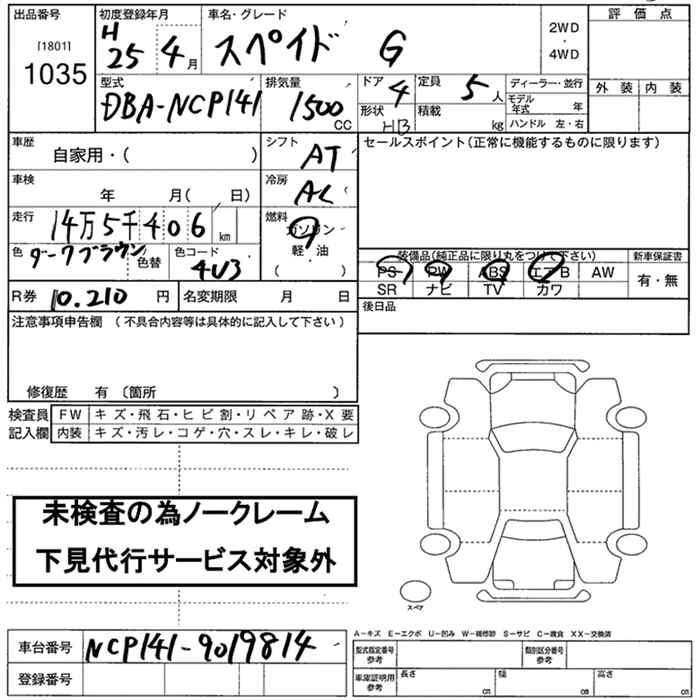 出品番号 初度登録年月 車名・グレード 評価点
[1801] 1035 H25 4月 スペイド G 2WD・4WD
外装 内装
型式 排気量 ドア 4 定員 5人 ディーラー・並行
DBA-NCP141 1500 CC 形状 HB 積載 kg モデル年式 年
ハンドル 左・右
車歴 自家用・( ) シフト AT セールスポイント(正常に機能するものに限ります)
車検 年 月( 日) 冷房 AC
走行 14万5千406 km 燃料 ガソリン 軽・油 ( )
色 ダークブラウン 色替 色コード 4U3
装備品(純正品に限り丸をつけて下さい) 新車保証書
PS PW ABS エアB AW 有・無
SR ナビ TV カワ
R券 10.210 円 名変期限 月 日 後日品
注意事項申告欄 (不具合内容等は具体的に記入して下さい)
修復歴 有 〔箇所 〕
検査員 FW キズ・飛石・ヒビ割・リペア跡・X要
記入欄 内装 キズ・汚レ・コゲ・穴・スレ・キレ・破レ
未検査の為ノークレーム
下見代行サービス対象外
スペア
車台番号 NCP141-9019814
登録番号
A-キズ E-エクボ U-凹み W-補修跡 S-サビ C-腐食 XX-交換済
型式指定番号 参考 類別区分番号 参考
車庫証明用 参考 長さ cm 幅 cm 高さ cm